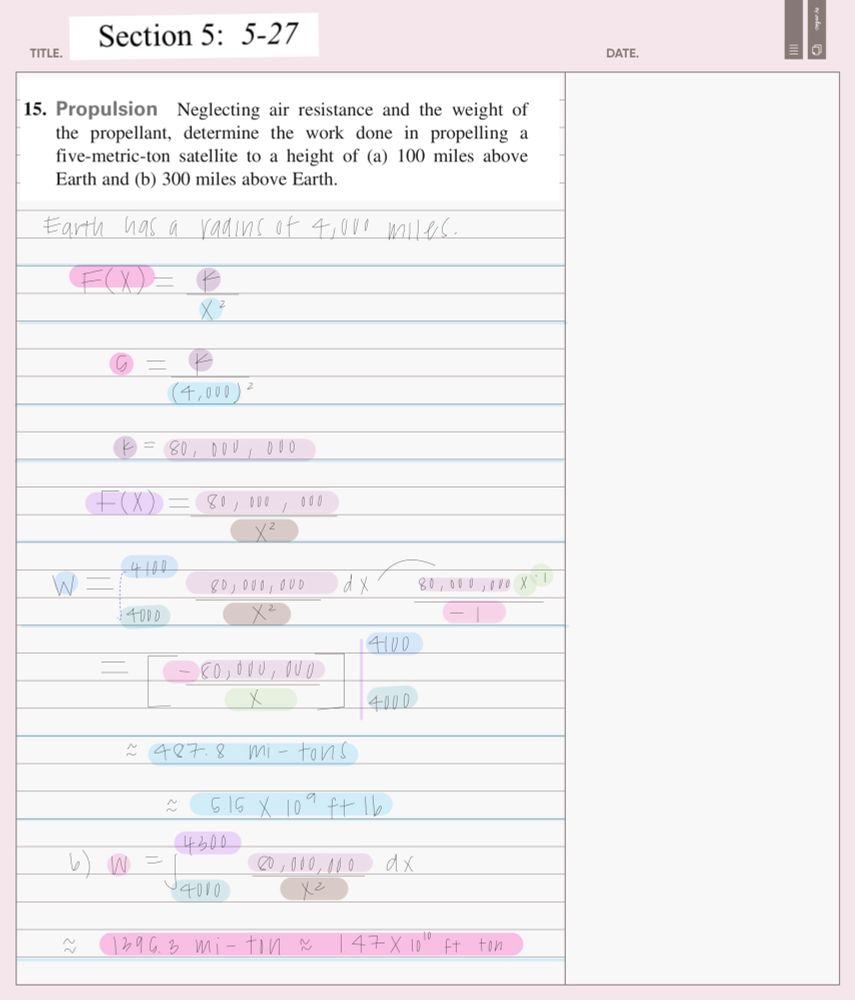 Section 5: 5-27
TITLE.
DATE.
15. Propulsion Neglecting air resistance and the weight of
the propellant, determine the work done in propelling a
five-metric-ton satellite to a height of (a) 100 miles above
Earth and (b) 300 miles above Earth.
Earth has a radius of 4,000 miles.
F(X) = k
X²
= k
(4,000)²
k = 80,000,000
F(X) = 80,000,000
X²
4100
W = 80,000,000 dx 80,000,000 X⁻¹
4000 X² -1
4100
= [ -80,000,000 ]
X 4000
≈ 487.8 mi-tons
≈ X 10⁹ ft lb
4300
b) W = ∫ 80,000,000 dx
4000 X²
≈ 1396.3 mi-ton ≈ 147 X 10¹⁰ ft ton